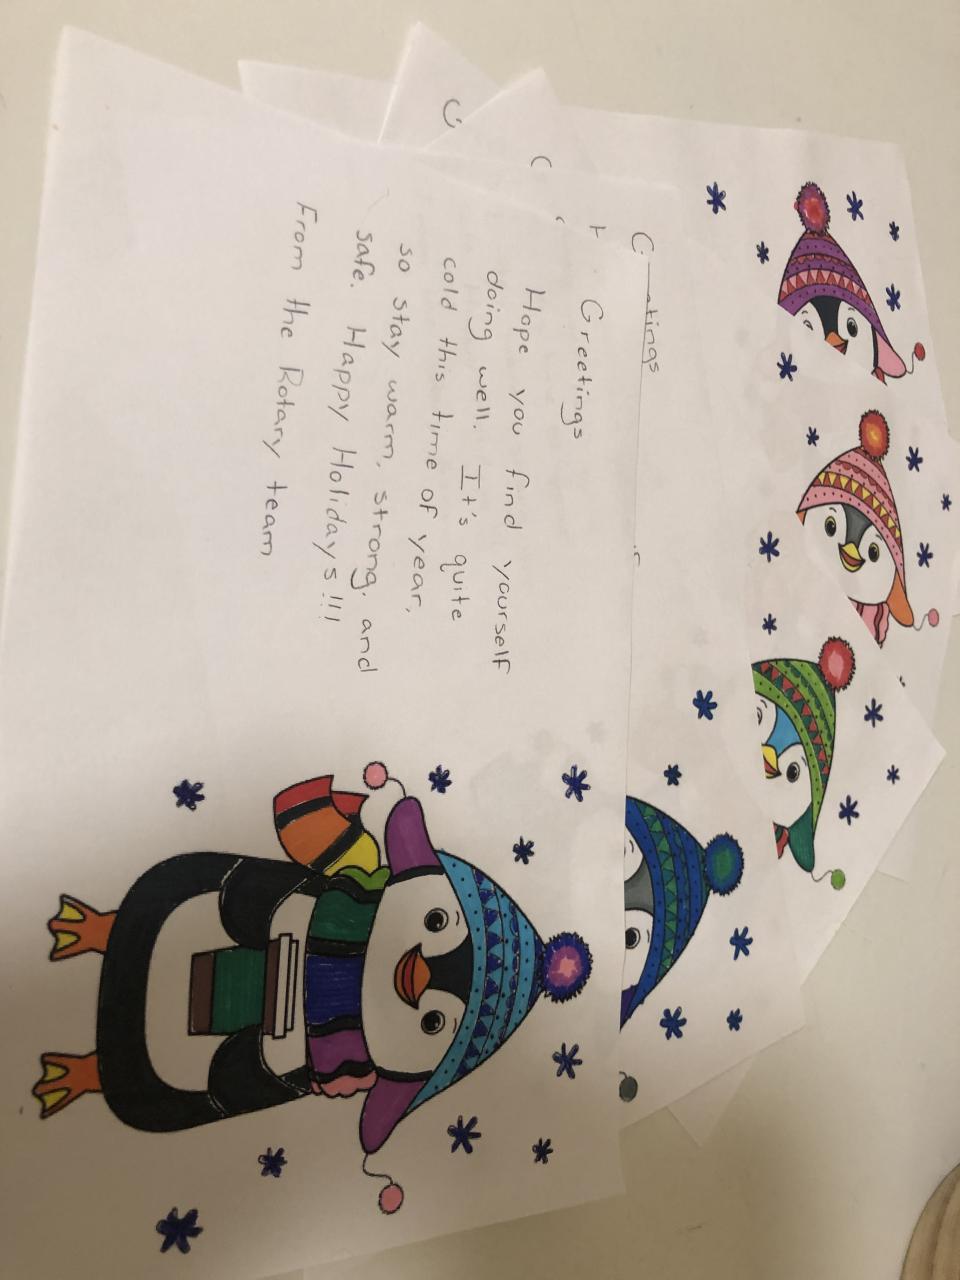 Greetings
Hope you find yourself
doing well. It's quite
cold this time of year,
so stay warm, strong, and
safe. Happy Holidays!!!
From the Rotary team
etings